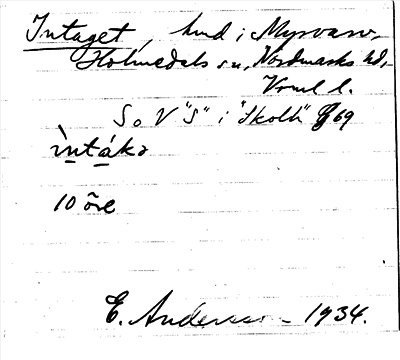 Intaget, hmd i Myrvarv,
Holmedals sn, Nordmarks hd,
Vrml l.
S o V "S" i "Skolh" g 69
ìntákə
10 öre
E. Andersson 1934.